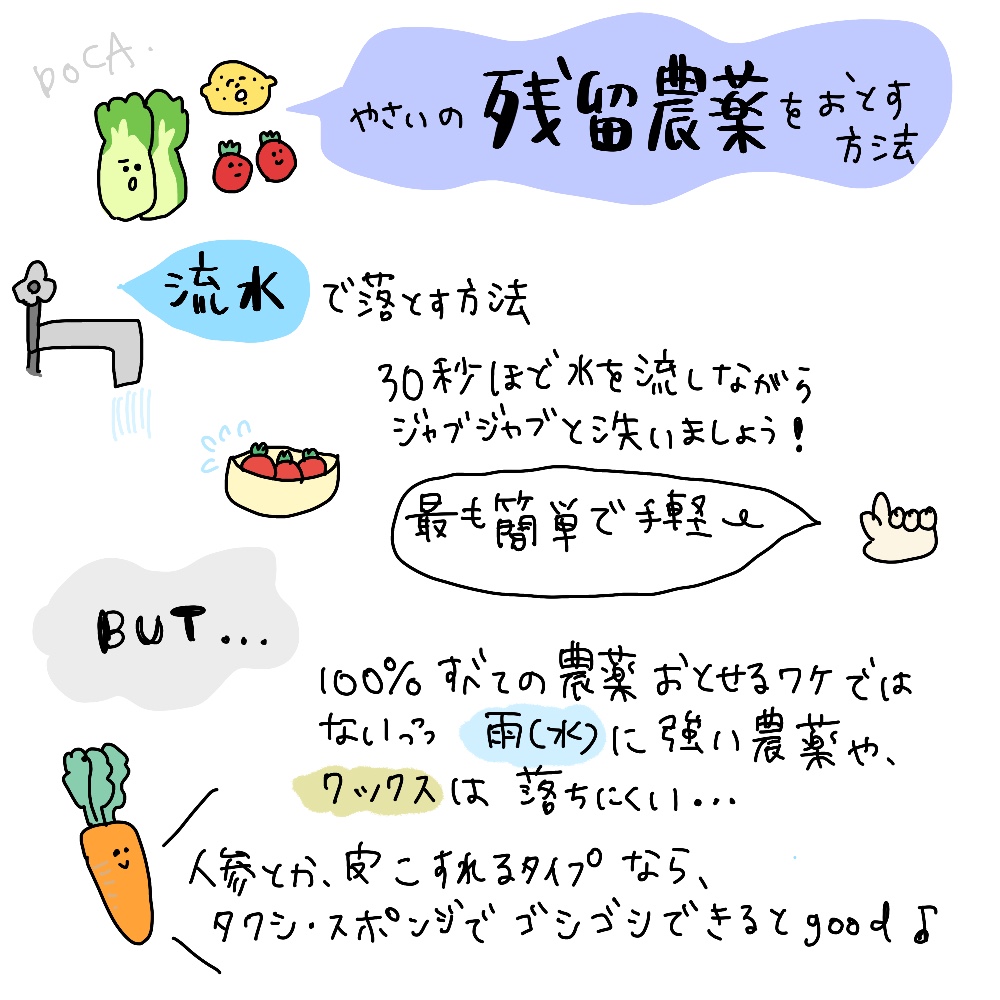 DOCA.
やさいの残留農薬をおとす
方法
流水で落とす方法
30秒ほど水を流しながら
ジャブジャブと洗いましょう！
最も簡単で手軽
BUT...
100%すべての農薬おとせるワケでは
ないっっ 雨(水)に強い農薬や、
ワックスは落ちにくい...
人参とか、皮こすれるタイプなら、
タワシ・スポンジでゴシゴシできるとgood♪